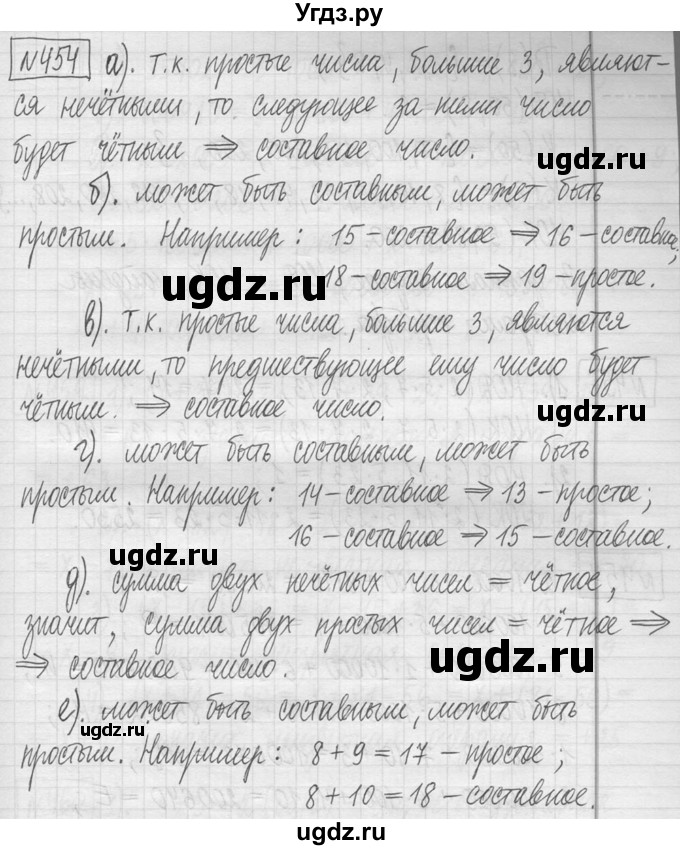 Угдз.ру
№454 а). т.к. простые числа, большие 3, являют-
ся нечётными, то следующее за ними число
будет чётным ⇒ составное число.
ugdz.ru
б). может быть составным, может быть
ugdz.ru
простым. Например: 15 – составное ⇒ 16 – составное,
ugdz.ru
18 – составное ⇒ 19 – простое.
в). т.к. простые числа, большие 3, являются
нечётными, то предшествующее ему число будет
чётным. ⇒ составное число.
ugdz.ru
г). может быть составным, может быть
простым. Например: 14 – составное ⇒ 13 – простое;
16 – составное ⇒ 15 – составное.
ugdz.ru
д). сумма двух нечётных чисел = чётное,
значит, сумма двух простых чисел = чётное ⇒
ugdz.ru
⇒ составное число.
е). может быть составным, может быть
ugdz.ru
простым. Например: 8 + 9 = 17 – простое;
8 + 10 = 18 – составное.
ugdz.ru